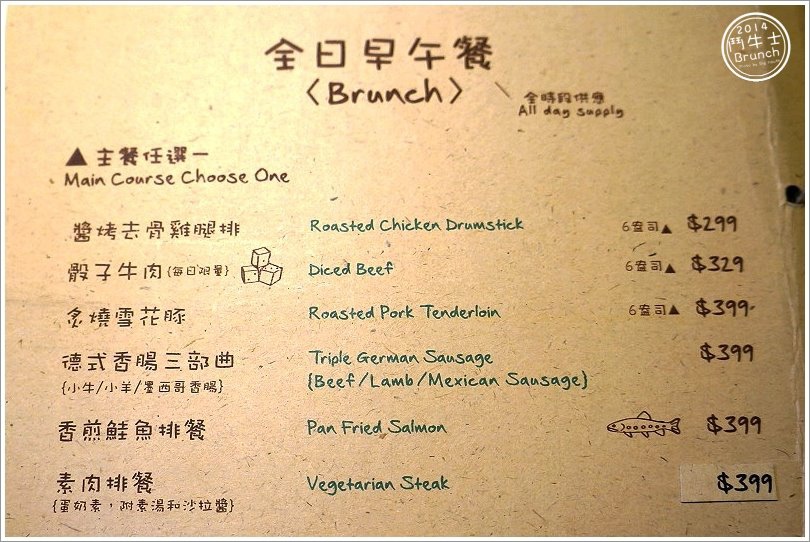 全日早午餐
〈Brunch〉
全時段供應
All day supply
2014
鬥牛士
Brunch
▲ 主餐任選一
Main Course Choose One
醬烤去骨雞腿排 Roasted Chicken Drumstick 6盎司▲ $299
骰子牛肉{每日限量} Diced Beef 6盎司▲ $329
炙燒雪花豚 Roasted Pork Tenderloin 6盎司▲ $399
德式香腸三部曲 Triple German Sausage $399
{小牛/小羊/墨西哥香腸} {Beef/Lamb/Mexican Sausage}
香煎鮭魚排餐 Pan Fried Salmon $399
素肉排餐 Vegetarian Steak $399
{蛋奶素，附素湯和沙拉醬}